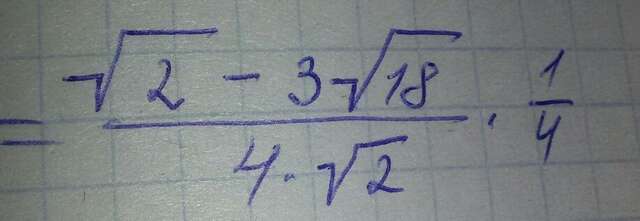 = \frac{\sqrt{2} - 3\sqrt{18}}{4 \cdot \sqrt{2}} \cdot \frac{1}{4}